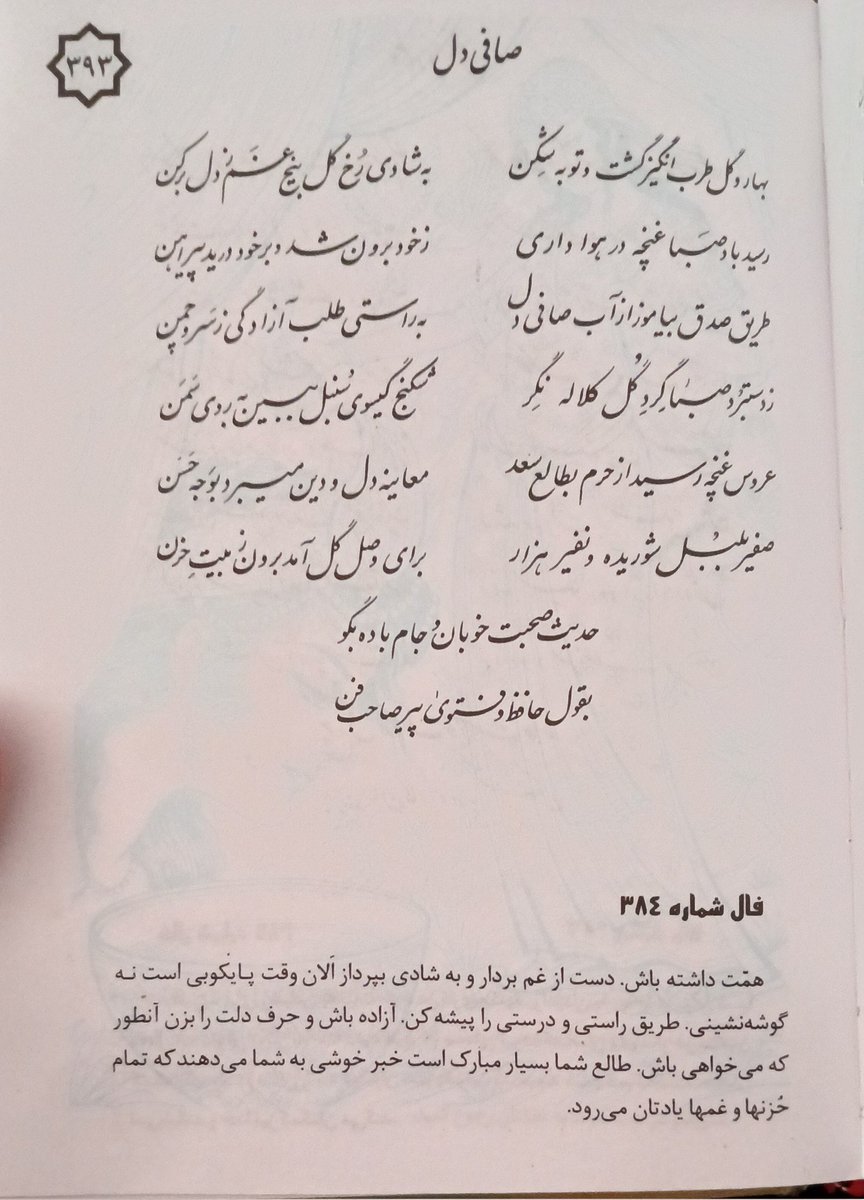 ۳۹۳
صافی دل
بهار و گل طرب انگیز گشت و توبه شکن به شادی رُخ گل بیخ غم ز دل برکن
رسید باد صبا غنچه در هواداری ز خود برون شد و بر خود درید پیراهن
طریق صدق بیاموز از آب صافی دل به راستی طلب آزادگی ز سرو چمن
ز دستبرد صبا گردِ گُل کلاله نگر شکنج گیسوی سُنبل ببین به روی سَمَن
عروس غنچه رسید از حرم بطالع سعد معاینه دل و دین میبرد بوَجه حَسَن
صفیر بلبل شوریده و نفیر هزار برای وصل گل آمد برون ز بیتِ حزن
حدیث صحبت خوبان و جام باده بگو
بقول حافظ و فتویٰ پیر صاحب فن
فال شماره ۳۸۴
همّت داشته باش. دست از غم بردار و به شادی بپرداز اَلان وقت پایکوبی است نه
گوشه‌نشینی. طریق راستی و درستی را پیشه کن. آزاده باش و حرف دلت را بزن آنطور
که می‌خواهی باش. طالع شما بسیار مبارک است خبر خوشی به شما می‌دهند که تمام
حُزنها و غمها یادتان می‌رود.